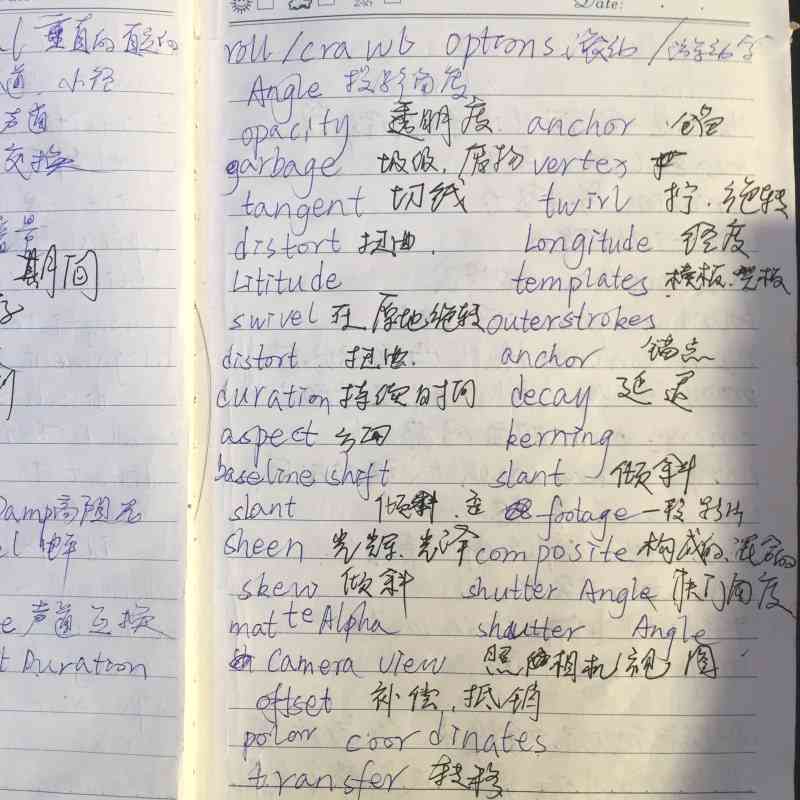 Date:
垂直的
道 小径
声道
交换
期间
Damp高阻尼
声道互换
Duration
roll/crawl options 滚动/
Angle 投影角度
opacity 透明度 anchor
garbage 垃圾,废物 vertex
tangent 切线 twirl 拧.绝转
distort 扭曲. Longitude 经度
Lititude templates 模板.
swivel 在原地绝转 outerstrokes
distort 扭曲. anchor 锚点
duration 持续时间 decay 延迟
aspect 方面 kerning
baseline shift slant 倾斜
slant 倾斜. footage 一段影片
sheen 光辉.光泽 composite 构成的.混合的
skew 倾斜 shutter Angle 快门角度
matte Alpha shutter Angle
Camera view 照相机视图
offset 补偿.抵销
polar coordinates
transfer 转移